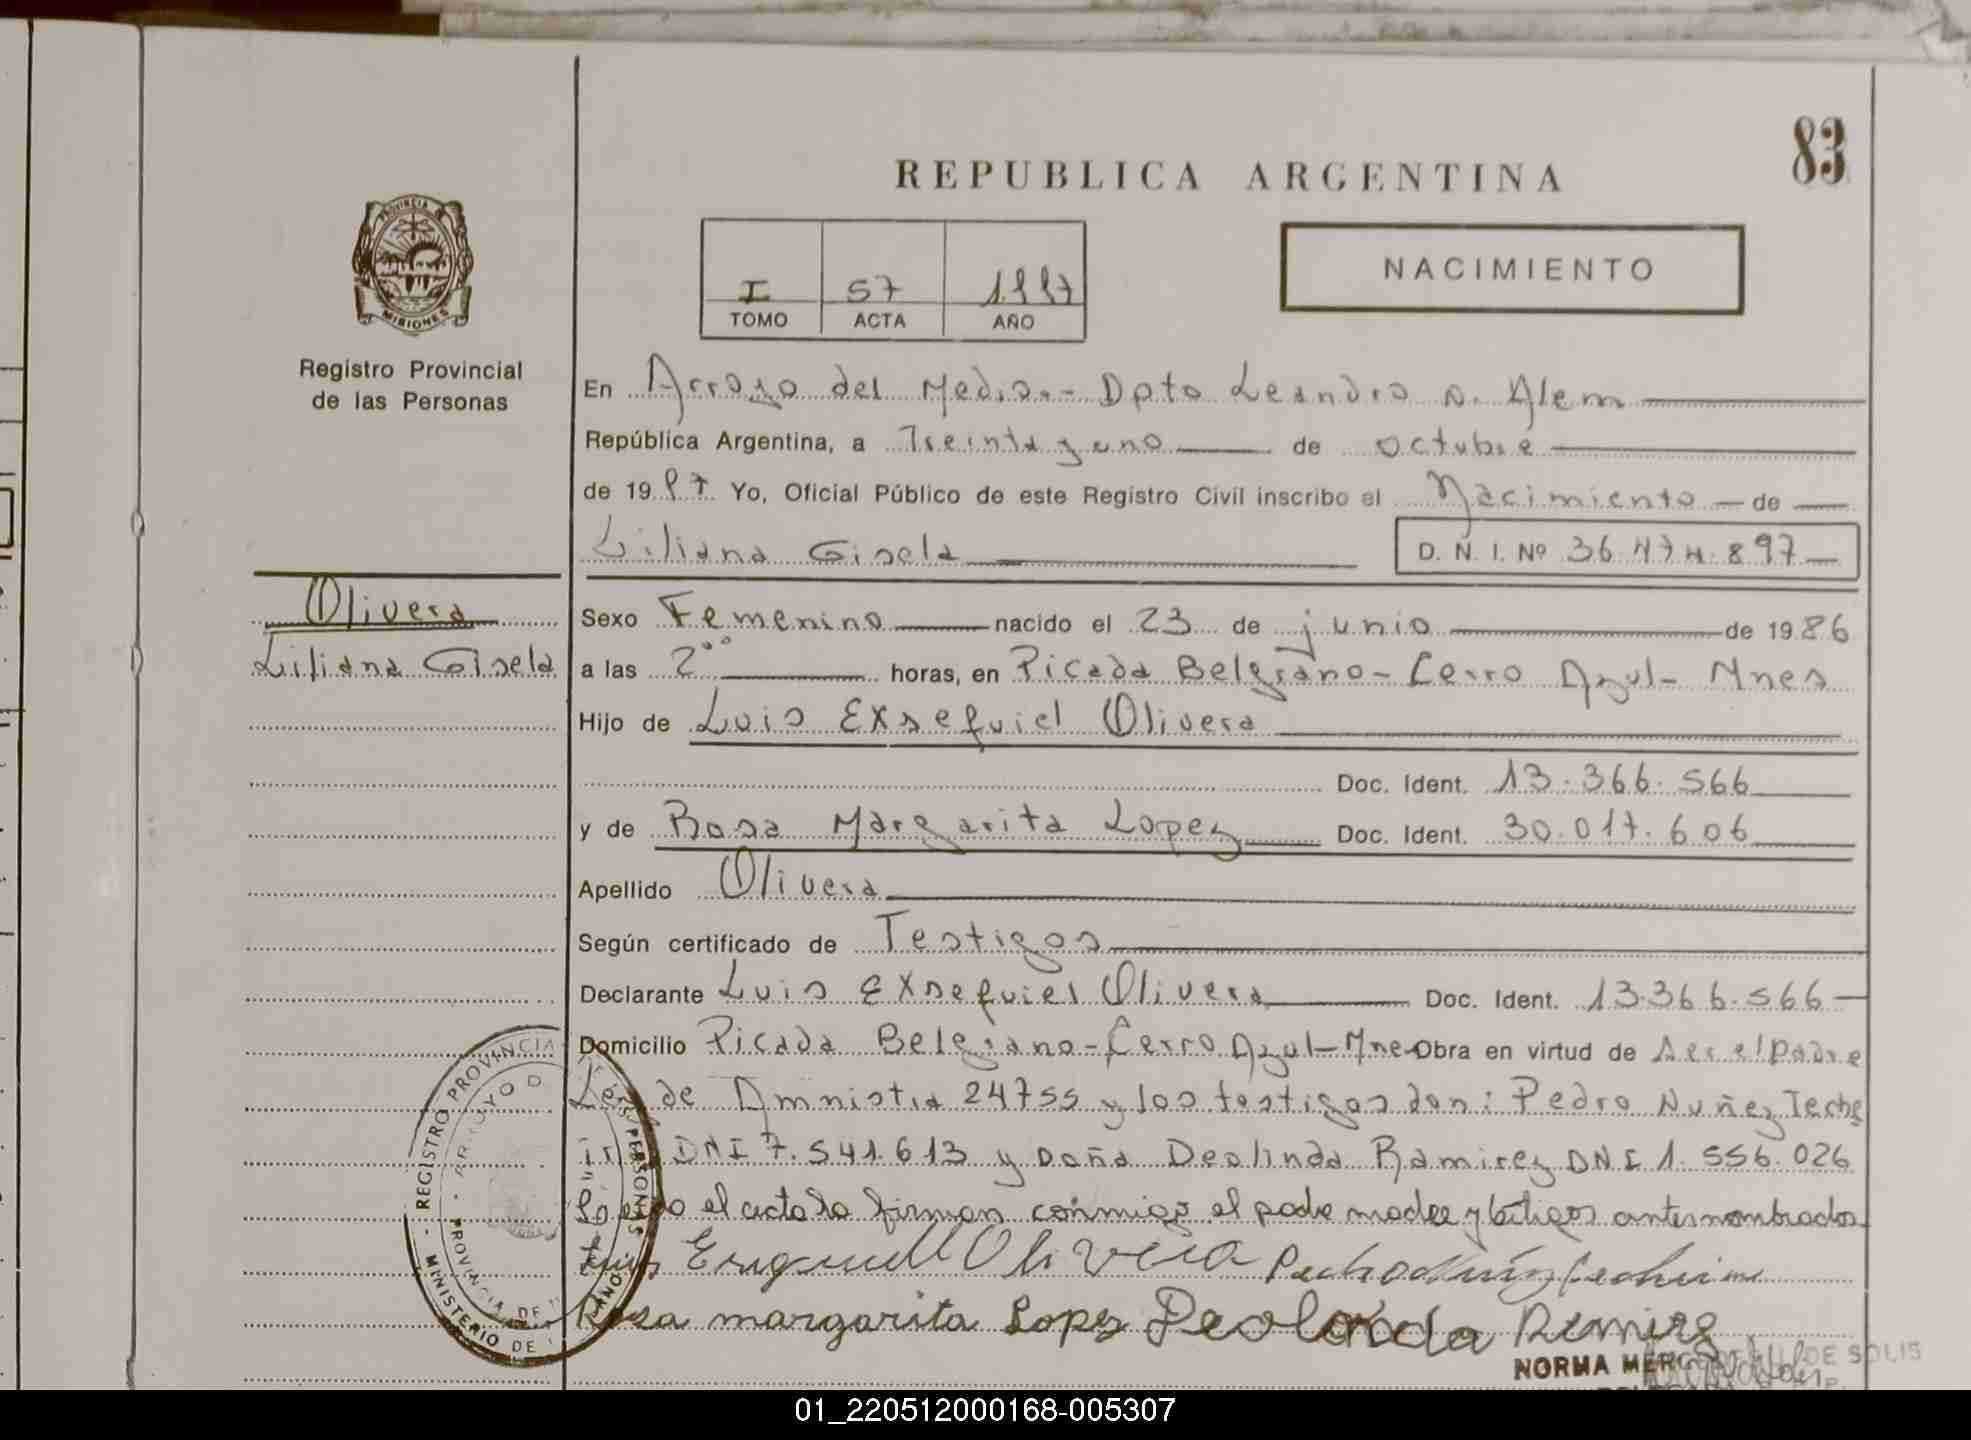 83
REPUBLICA ARGENTINA
PROVINCIA DE
MISIONES
I 57 1997
TOMO ACTA AÑO
NACIMIENTO
Registro Provincial
de las Personas
En Arroyo del Medio.- Dpto Leandro N. Alem
República Argentina, a Treinta y uno de octubre
de 1997 Yo, Oficial Público de este Registro Civil inscribo el Nacimiento de
Liliana Gisela D. N. I. Nº 36.474.897
Olivera
Liliana Gisela
Sexo Femenino nacido el 23 de junio de 1986
a las 2⁰⁰ horas, en Picada Belgrano - Cerro Azul - Mnes
Hijo de Luis Exsequiel Olivera
Doc. Ident. 13.366.566
y de Rosa Margarita Lopez Doc. Ident. 30.017.606
Apellido Olivera
Según certificado de Testigos
Declarante Luis Exsequiel Olivera Doc. Ident. 13.366.566
Domicilio Picada Belgrano - Cerro Azul - Mnes Obra en virtud de ser el padre
Ley de Amnistia 24755 y los testigos son: Pedro Nuñez Teche
ira DNI 7.541.613 y Doña Deolinda Ramirez DNI 1.556.026
el acta la firman conmigo el padre madre y testigos antes nombrados
Luis Olivera
Rosa margarita Lopez Deolinda Ramirez
REGISTRO PROVINCIAL DE LAS PERSONAS
MINISTERIO DE
ARROYO D
PROVINCIA DE
NORMA DE SOLIS
01_220512000168-005307